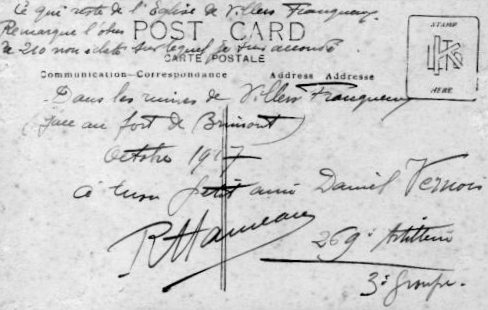 Ce qui reste de l'Eglise de Villers Franqueux.
Remarque l'obus
de 210 non éclaté sur lequel je suis accoudé
POST CARD
CARTE POSTALE
Communication-Correspondance
Address Addresse
STAMP
HERE
Dans les ruines de Villers Franqueux
(face au fort de Brimont)
Octobre 1917
à mon petit ami Daniel Vernois
R Hameau
269e Artillerie
3e Groupe.